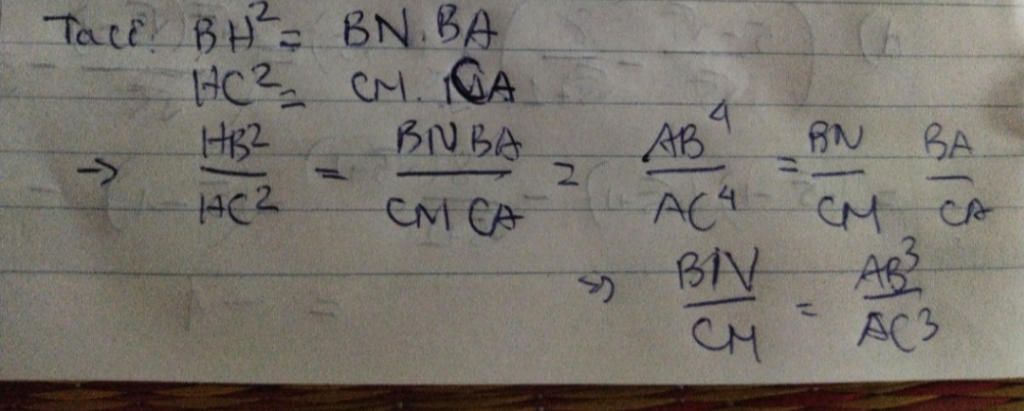 Tacé: BH² = BN.BA
HC² = CM. CA
→ HB²/HC² = BN BA/CM CA = AB⁴/AC⁴ = BN/CM BA/CA
=> BN/CM = AB³/AC³